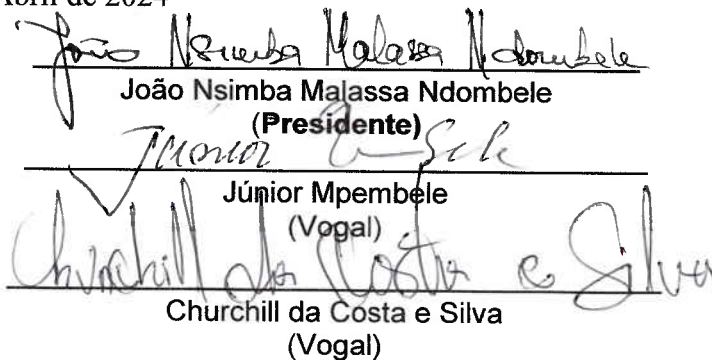 Abril de 2024
João Nsimba Malassa Ndombele
João Nsimba Malassa Ndombele
(Presidente)
Júnior
Júnior Mpembele
(Vogal)
Churchill da Costa e Silva
Churchill da Costa e Silva
(Vogal)